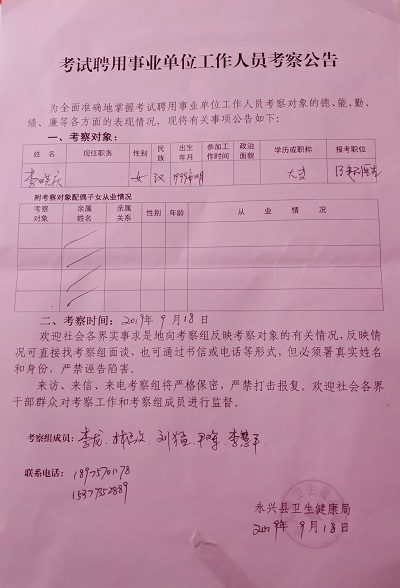 考试聘用事业单位工作人员考察公告
为全面准确地掌握考试聘用事业单位工作人员考察对象的德、能、勤、
绩、廉等各方面的表现情况，现将有关事项公告如下：
一、考察对象：
姓名 现任职务 性别 民族 出生年月 参加工作时间 政治面貌 学历或职称 报考职位
女 汉 大专
附考察对象配偶子女从业情况
考察对象 亲属姓名 亲属关系 性别 年龄 从业情况
二、考察时间：2019年9月18日
欢迎社会各界实事求是地向考察组反映考察对象的有关情况，反映情
况可直接找考察组面谈，也可通过书信或电话等形式，但必须署真实姓名
和身份，严禁诬告陷害。
来访、来信、来电考察组将严格保密，严禁打击报复。欢迎社会各界
干部群众对考察工作和考察组成员进行监督。
考察组成员：李龙、刘猛、
联系电话：18975701178
15377352889
永兴县卫生健康局
2019年9月18日